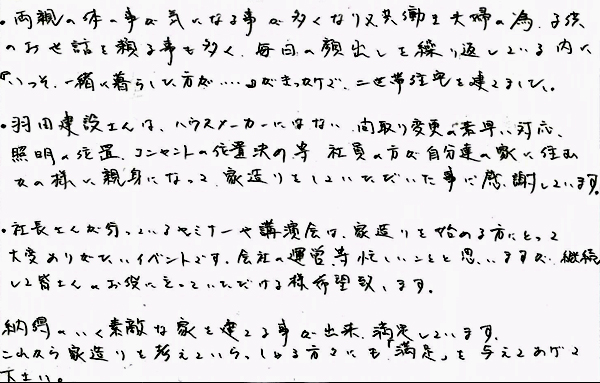 ・両親の体の事が気になる事が多くなり又共働き夫婦の為、子供
のお世話を頼る事も多く、毎日の顔出しを繰り返している内に
『いっそ、一緒に暮らした方が……』がきっかけで、二世帯住宅を建てました。
・羽田建設さんは、ハウスメーカーにはない、間取り変更の素早い対応、
照明の位置、コンセントの位置決め等 社員の方が自分達の家に住む
かの様に親身になって、家造りをしていただいた事に感謝しています。
・社長さんが行っているセミナーや講演会は、家造りを始める方にとって
大変ありがたいイベントです。会社の運営等忙しいことと思いますが、継続
して皆さんのお役に立っていただける様希望致します。
納得のいく素敵な家を建てる事が出来、満足しています。
これから家造りを考えていらっしゃる方々にも「満足」を与えてあげて
下さい。